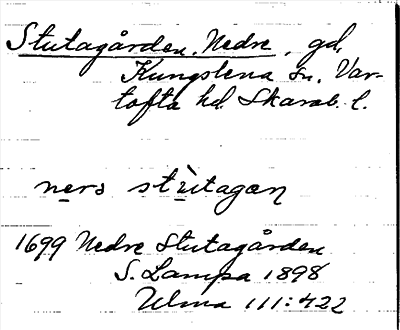 Stutagården, Nedre, gd,
Kungslena sn, Var-
tofta hd. Skarab. l.
ners stùtagan
1699 Nedre Stutagården
S. Lampa 1898
Ulma 111:422